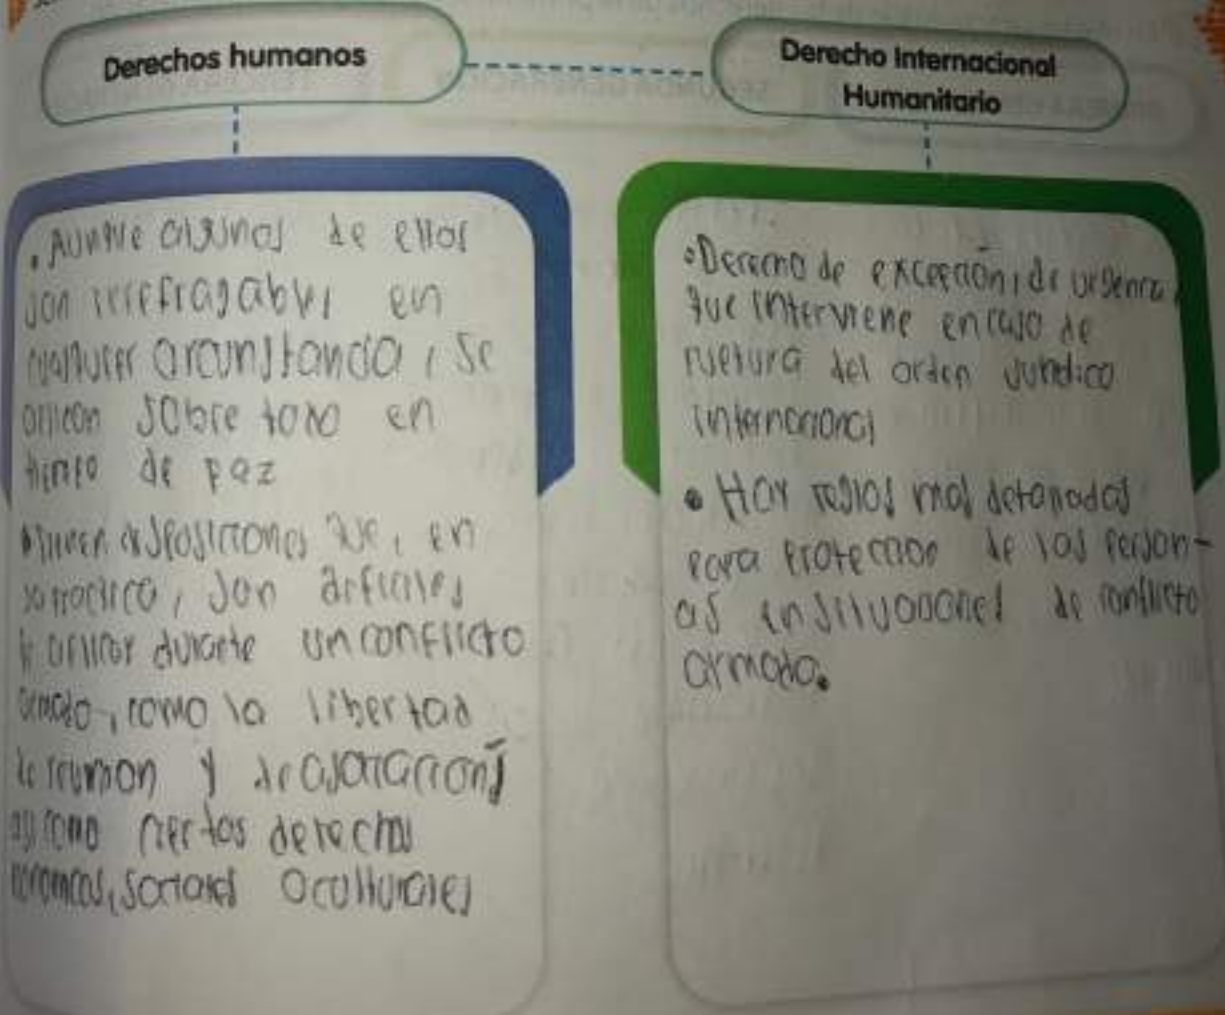 Derechos humanos
Derecho Internacional
Humanitario
. Aunque algunos de ellos
son irrefragables en
cualquier circunstancia, se
aplican sobre todo en
tiempo de paz
• tienen disposiciones que, en
practica, son dificiles
aplicar durante un conflicto
armado, como la libertad
de reunion y de asociación,
asi como ciertos derechos
economicos, sociales o culturales
• Derecho de excepción, de urgencia,
que interviene en caso de
ruptura del orden Juridico
internacional
• Hay reglas mas detalladas
para protección de las person-
as en situaciones de conflicto
armado.